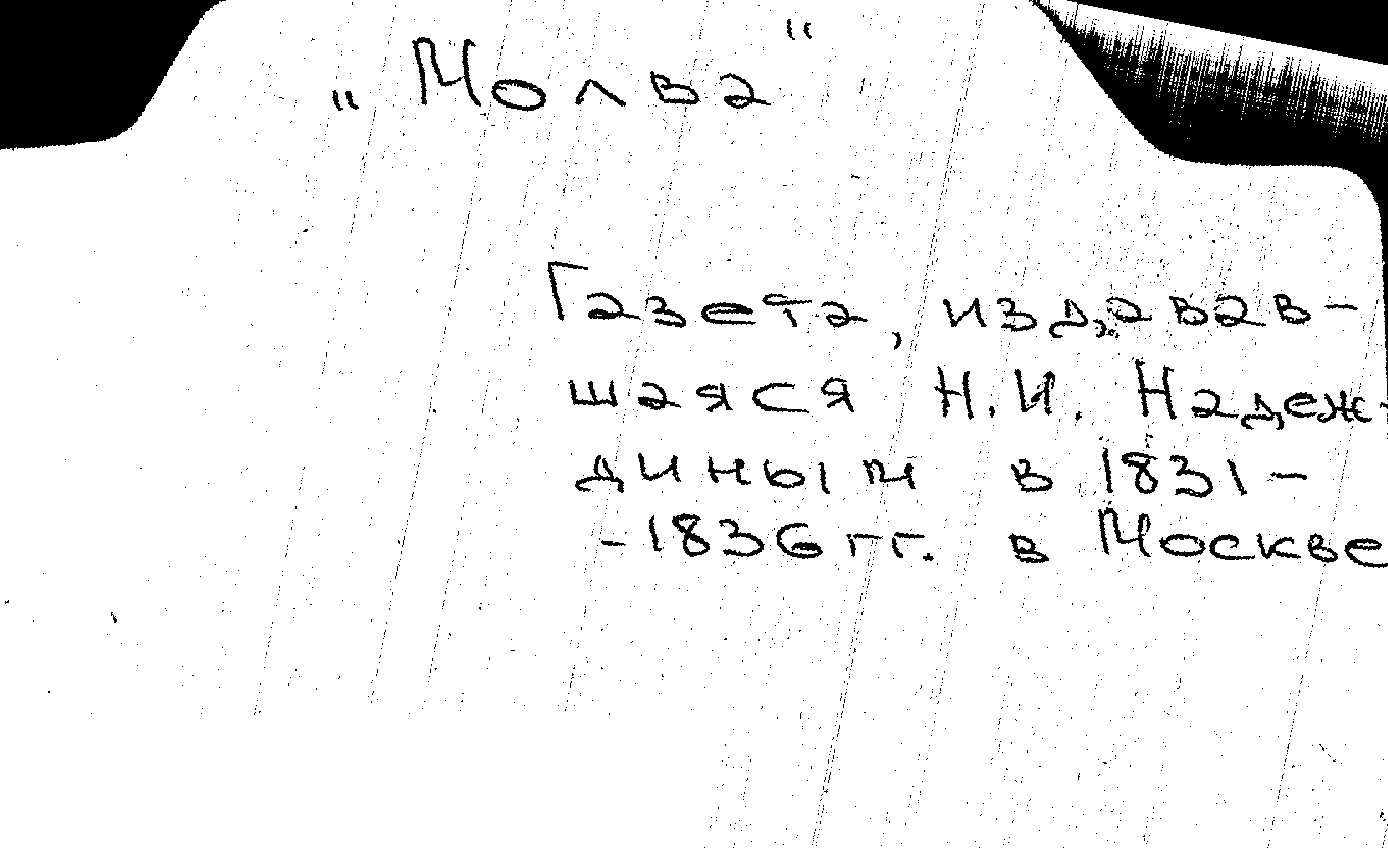 „Молва“
Газета, издавав-
шаяся Н.И. Надеж-
диным в 1831-
-1836 гг. в Москве